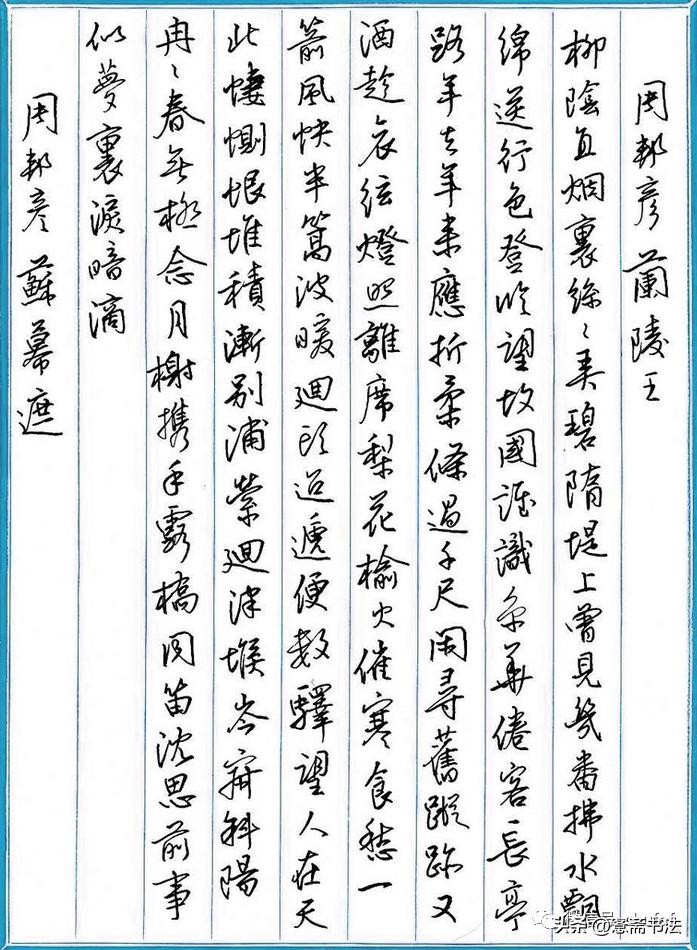 周邦彦 蘭陵王
柳陰直烟裏絲絲弄碧隋堤上曾見幾番拂水飄
綿送行色登临望故國誰識京華倦客長亭
路年去年来應折柔條過千尺閑尋舊蹤跡又
酒趁哀弦燈照離席梨花榆火催寒食愁一
箭風快半篙波暖迴头迢遞便數驛望人在天
北悽惻恨堆積漸别浦縈迴津堠岑寂斜陽
冉冉春無極念月榭携手露橋闻笛沈思前事
似夢裏淚暗滴
周邦彦 蘇幕遮
头条@騫斋书法